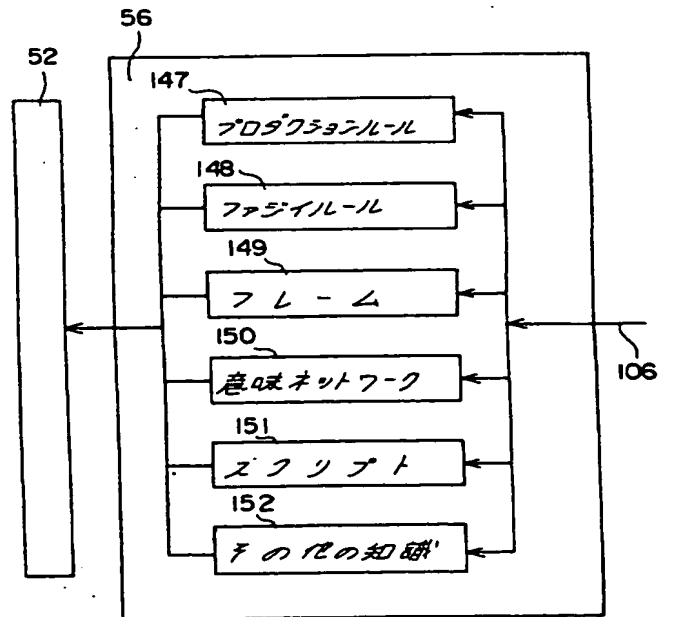 56
52
147
プロダクションルール
148
ファジイルール
149
フレーム
150
意味ネットワーク
106
151
スクリプト
152
その他の知識